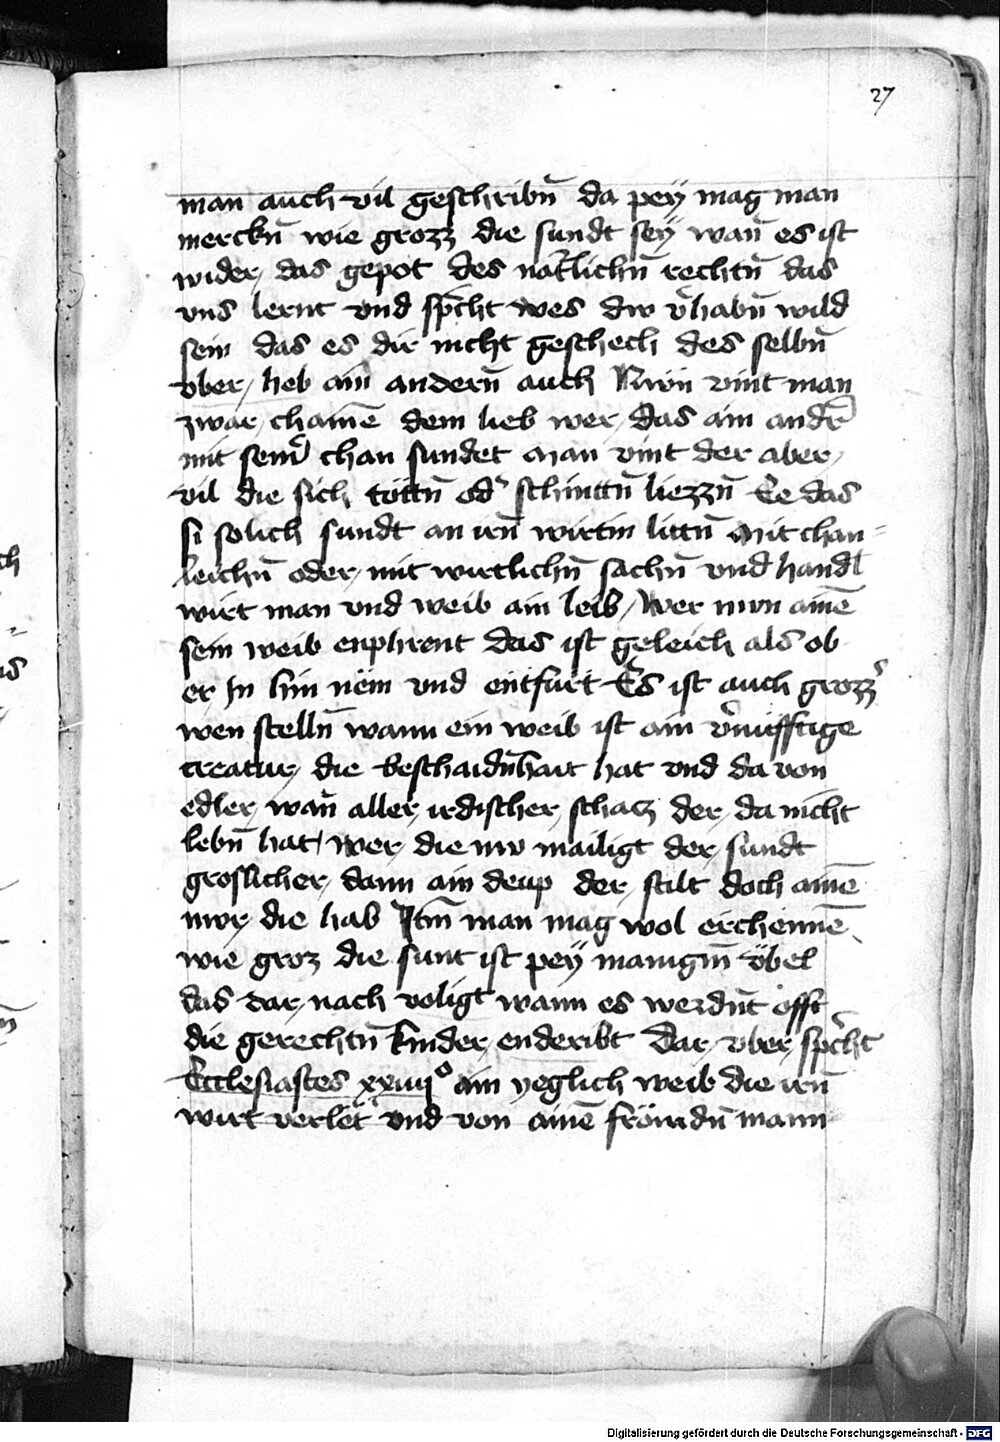 27
man auch vil geschribn̄ da pey mag man
merckn̄ wie grozz die sundt sey wan̄ es ist
wider das gepot des natͤlichn̄ rechtn̄ das
vns lernt vnd sp̄cht wes dw v̄habn̄ wild
sein das es dir nicht geschech des selbn̄
vber heb ain andern̄ auch Nwn vint man
zwar chainē dem lieb wer das ain andr̄
mit seinr̄ chan sundet man vint der aber
vil die sich töttn̄ od̄ schinttn̄ liezzn̄ Ee das
si solich sundt an irn̄ wirtin littn̄ Mit chan=
leichn̄ oder mit wirtlichn̄ sachn̄ vnd handl
wirt man vnd weib ain leib wer nwn ainē
sein weib enphrent das ist geleich als ob
er In hin näm vnd entfürt Es ist auch grozz̄
wen stelln̄ wann ein weib ist ain v̄nüfftige
creatur die beschaidn̄hait hat vnd da von
edler wan̄ aller irdischer schacz der da nicht
lebn̄ hat wer die nw mailigt der sundt
groslicher dann ain deup der stilt doch ainē
nwr die hab Itm̄ man mag wol erchennē
wie groz die sunt ist pey manigm̄ übel
das dar nach voligt wann es werdn̄t offt
die gerechtn̄ kinder enderibt Dar vber sp̄cht
Ecclesiastes xxiiijo ain yeglich weib die irn̄
wirt verlët vnd von ainē frömdn̄ mann
Digitalisierung gefördert durch die Deutsche Forschungsgemeinschaft - DFG